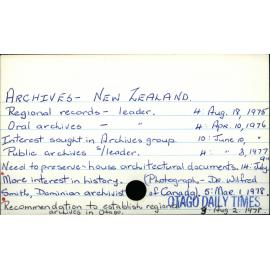 ARCHIVES - NEW ZEALAND.
Regional records - leader. 4: Aug. 18, 1975
Oral archives - " 4: Apr. 10, 1976
Interest sought in Archives group. 10: June 10, "
Public archives s/leader. 4: " 3, 1977
Need to preserve house architectural documents. 14: July
More interest in history. (Photograph - Dr. Wilfred
Smith, Dominion archivist of Canada). 5: Mar. 1, 1978.
Recommendation to establish regional
archives in Otago. 9: Aug 2. 1978.
OTAGO DAILY TIMES